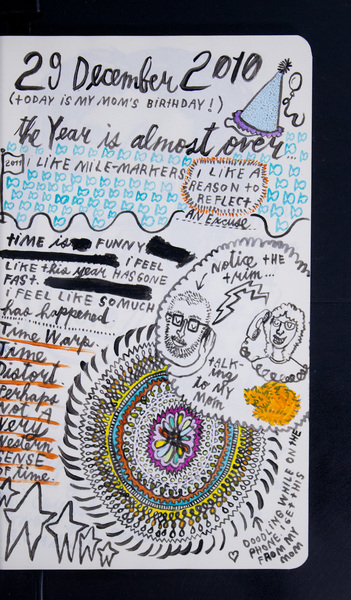 29 December 2010
(TODAY IS MY MOM'S BIRTHDAY!)
the Year is almost over...
2011
I LIKE MILE-MARKERS
I LIKE A
REASON to
REFLECT
AN Excuse
TIME is FUNNY
I FEEL
LIKE this year HAS GONE
FAST.
I FEEL LIKE SO MUCH
has happened.
Time Warp.
Time
Distort.
Perhaps
Not A
Very
Western
SENSE
OF time.
Notice THE
trim...
tALK-
ing
to MY
MOM
DOODLING WHILE ON THE
PHONE, I GET THIS
FROM MY
MOM